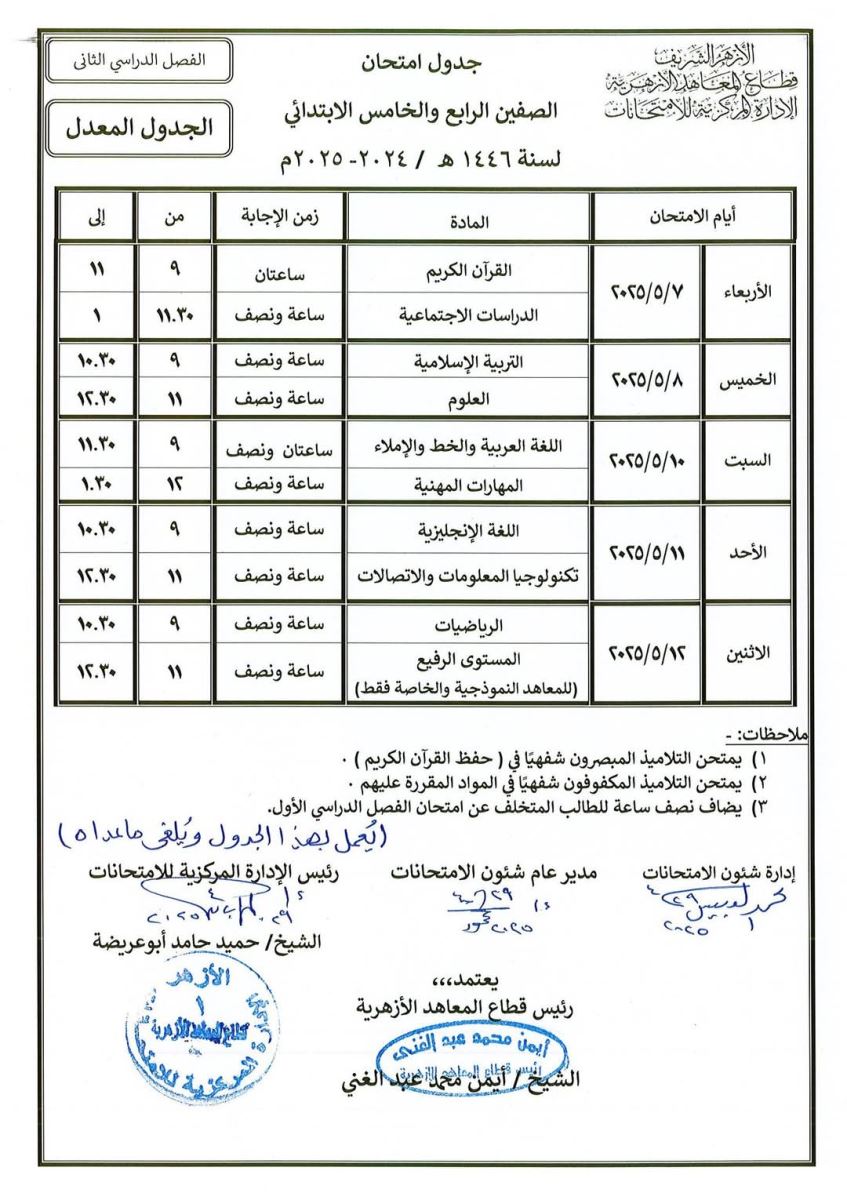 الأزهر الشريف
قطاع المعاهد الأزهرية
الإدارة المركزية للامتحانات
جدول امتحان
الصفين الرابع والخامس الابتدائي
لسنة ١٤٤٦ هـ / ٢٠٢٤- ٢٠٢٥م
الفصل الدراسي الثانى
الجدول المعدل
أيام الامتحان المادة زمن الإجابة من إلى
الأربعاء ٢٠٢٥/٥/٧ القرآن الكريم ساعتان ٩ ١١
الدراسات الاجتماعية ساعة ونصف ١١.٣٠ ١
الخميس ٢٠٢٥/٥/٨ التربية الإسلامية ساعة ونصف ٩ ١٠.٣٠
العلوم ساعة ونصف ١١ ١٢.٣٠
السبت ٢٠٢٥/٥/١٠ اللغة العربية والخط والإملاء ساعتان ونصف ٩ ١١.٣٠
المهارات المهنية ساعة ونصف ١٢ ١.٣٠
الأحد ٢٠٢٥/٥/١١ اللغة الإنجليزية ساعة ونصف ٩ ١٠.٣٠
تكنولوجيا المعلومات والاتصالات ساعة ونصف ١١ ١٢.٣٠
الاثنين ٢٠٢٥/٥/١٢ الرياضيات ساعة ونصف ٩ ١٠.٣٠
المستوى الرفيع ساعة ونصف ١١ ١٢.٣٠
(للمعاهد النموذجية والخاصة فقط)
ملاحظات: -
١) يمتحن التلاميذ المبصرون شفهيًا في ( حفظ القرآن الكريم ) ٠
٢) يمتحن التلاميذ المكفوفون شفهيًا في المواد المقررة عليهم ٠
٣) يضاف نصف ساعة للطالب المتخلف عن امتحان الفصل الدراسي الأول.
(يُعمل بهذا الجدول ويُلغى ماعداه)
إدارة شئون الامتحانات
مدير عام شئون الامتحانات
رئيس الإدارة المركزية للامتحانات
الشيخ/ حميد حامد أبوعريضة
يعتمد،،،
رئيس قطاع المعاهد الأزهرية
أيمن محمد عبد الغنى
رئيس قطاع المعاهد الأزهرية
الشيخ / أيمن محمد عبد الغني
الأزهر
قطاع المعاهد الأزهرية
المركزية للامتحانات